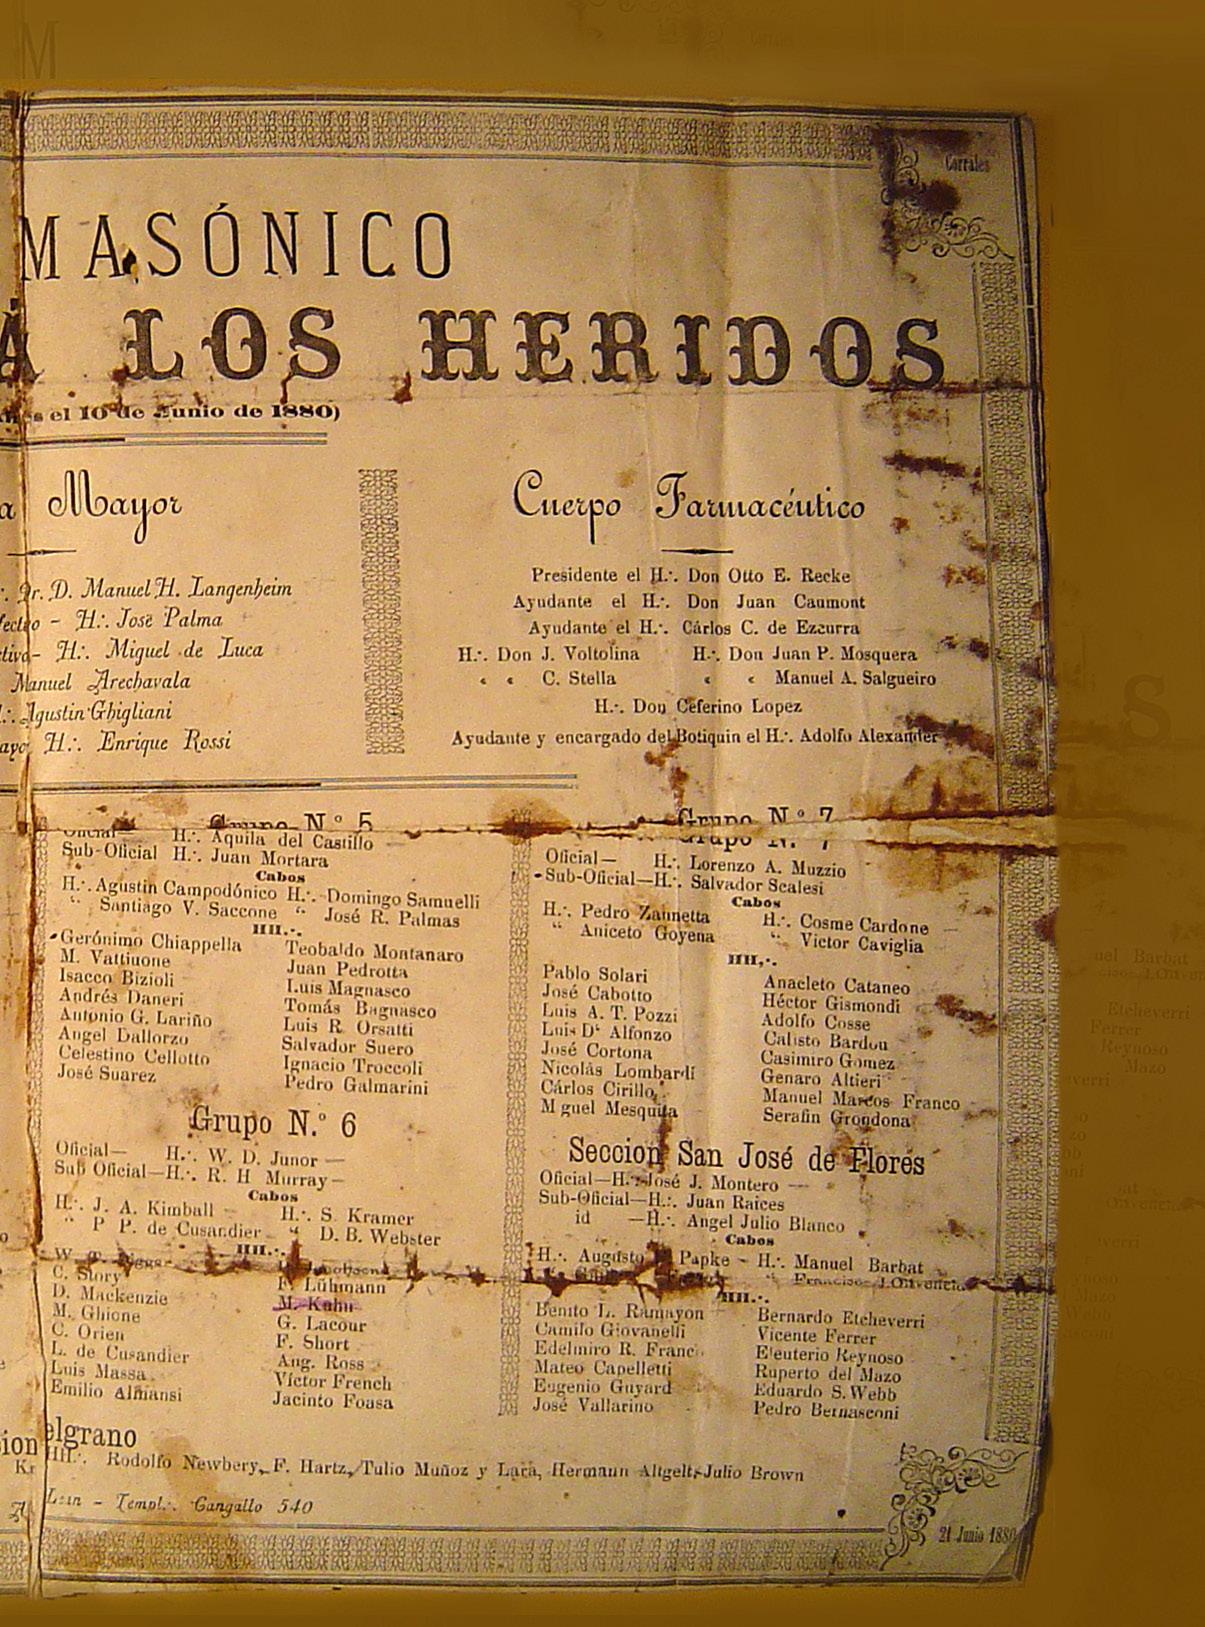 Corrales
MASÓNICO
Á LOS HERIDOS
es el 10 de Junio de 1880)
a Mayor
Dr. D. Manuel H. Langenheim
H∴ José Palma
H∴ Miguel de Luca
Manuel Arechavala
Agustin Ghigliani
H∴ Enrique Rossi
Cuerpo Farmacéutico
Presidente el H∴ Don Otto E. Recke
Ayudante el H∴ Don Juan Caumont
Ayudante el H∴ Cárlos C. de Ezcurra
H∴ Don J. Voltolina H∴ Don Juan P. Mosquera
“ “ C. Stella “ “ Manuel A. Salgueiro
H∴ Don Ceferino Lopez
Ayudante y encargado del Botiquin el H∴ Adolfo Alexander
Grupo N.º 5
Oficial— H∴ Aquila del Castillo
Sub-Oficial H∴ Juan Mortara
Cabos
H∴ Agustin Campodónico H∴ Domingo Samuelli
“ Santiago V. Saccone “ José R. Palmas
HH∴
Gerónimo Chiappella Teobaldo Montanaro
M. Vattiuone Juan Pedrotta
Isacco Bizioli Luis Magnasco
Andrés Daneri Tomás Bagnasco
Antonio G. Lariño Luis R. Orsatti
Angel Dallorzo Salvador Suero
Celestino Cellotto Ignacio Troccoli
José Suarez Pedro Galmarini
Grupo N.º 6
Oficial— H∴ W. D. Junor —
Sub Oficial—H∴ R. H Murray—
Cabos
H∴ J. A. Kimball H∴ S. Kramer
“ P P. de Cusandier “ D. B. Webster
HH∴
C. Story F. Lühmann
D. Mackenzie M. Kuhn
M. Ghione G. Lacour
C. Orien F. Short
L. de Cusandier Aug. Ross
Luis Massa Víctor French
Emilio Almansi Jacinto Foasa
Grupo N.º 7
Oficial— H∴ Lorenzo A. Muzzio
Sub-Oficial—H∴ Salvador Scalesi
Cabos
H∴ Pedro Zannetta H∴ Cosme Cardone
“ Aniceto Goyena “ Victor Caviglia
HH∴
Pablo Solari Anacleto Cataneo
José Cabotto Héctor Gismondi
Luis A. T. Pozzi Adolfo Cosse
Luis D' Alfonzo Calisto Bardou
José Cortona Casimiro Gomez
Nicolás Lombardi Genaro Altieri
Cárlos Cirillo Manuel Marcos Franco
Miguel Mesquita Serafin Grondona
Seccion San José de Flores
Oficial—H∴ José J. Montero —
Sub-Oficial—H∴ Juan Raices
id —H∴ Angel Julio Blanco
Cabos
H∴ Augusto Papke — H∴ Manuel Barbat
“ Francisco J. Olivencia
HH∴
Benito L. Ramayon Bernardo Etcheverri
Camilo Giovanelli Vicente Ferrer
Edelmiro R. Franc Eleuterio Reynoso
Mateo Capelletti Ruperto del Mazo
Eugenio Guyard Eduardo S. Webb
José Vallarino Pedro Bernasconi
elgrano
HH∴ Rodolfo Newbery, F. Hartz, Tulio Muñoz y Lara, Hermann Altgelt, Julio Brown
Templ∴ Cangallo 540
21 Junio 1880